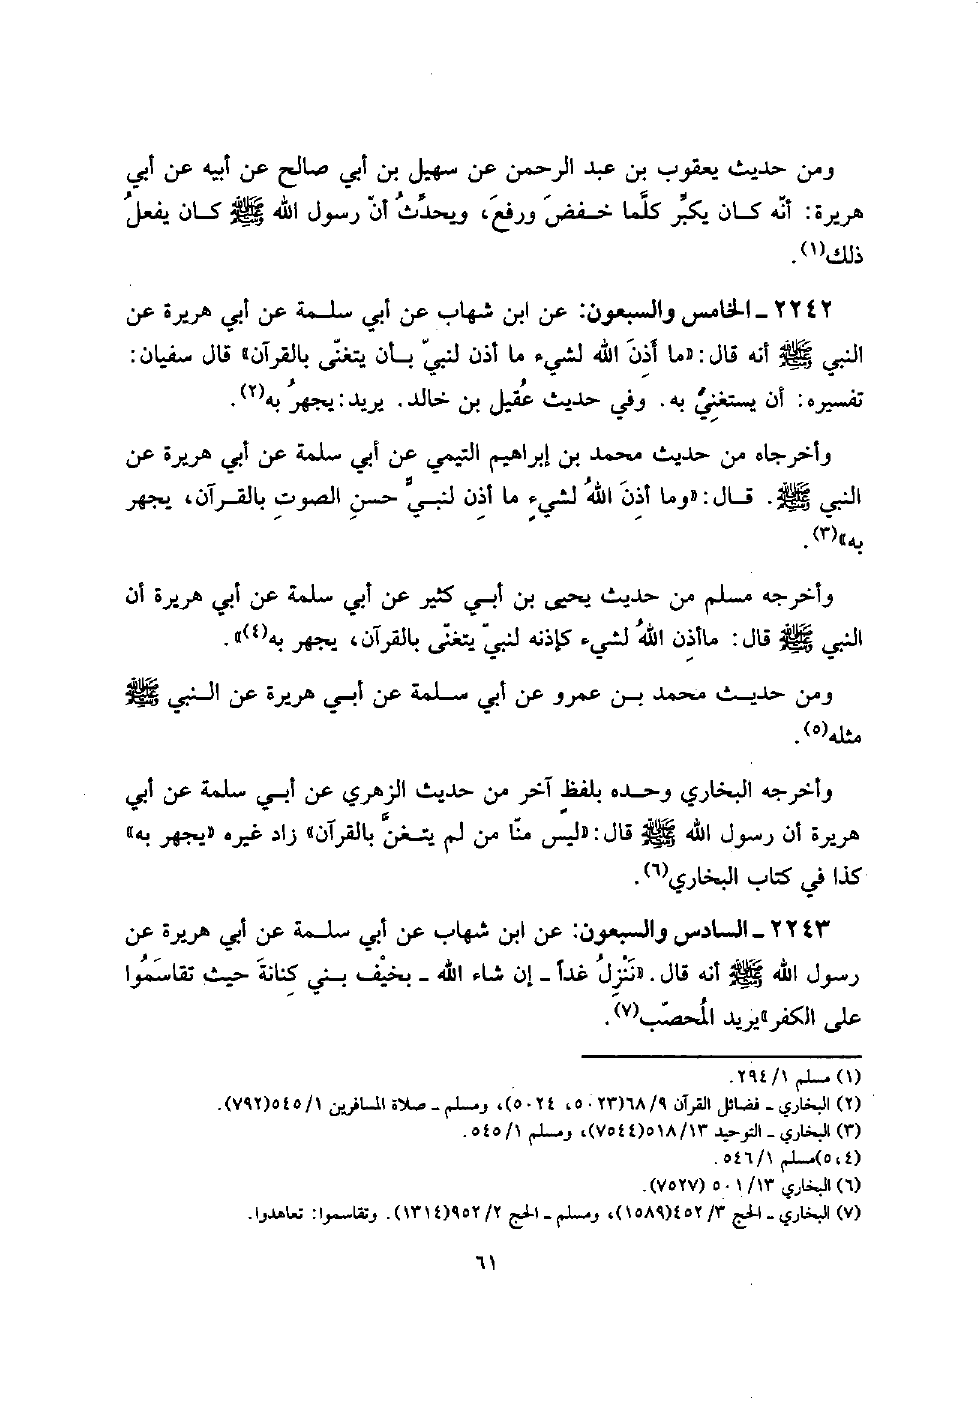 ومن حديث يعقوب بن عبد الرحمن عن سهيل بن أبي صالح عن أبيه عن أبي
هريرة: أنّه كان يكبِّر كلَّما خفضَ ورفعَ، ويحدِّثُ أنّ رسول الله ﷺ كان يفعلُ
ذلك(١).
٢٢٤٢ ـ الخامس والسبعون: عن ابن شهاب عن أبي سلمة عن أبي هريرة عن
النبي ﷺ أنه قال: «ما أَذِنَ الله لشيء ما أذن لنبيّ بأن يتغنّى بالقرآن» قال سفيان:
تفسيره: أن يستغنِيَ به. وفي حديث عُقيل بن خالد. يريد: يجهرُ به(٢).
وأخرجاه من حديث محمد بن إبراهيم التيمي عن أبي سلمة عن أبي هريرة عن
النبي ﷺ. قال: «وما أذِنَ اللهُ لشيءٍ ما أذِن لنبيٍّ حسنِ الصوتِ بالقرآن، يجهر
به»(٣).
وأخرجه مسلم من حديث يحيى بن أبي كثير عن أبي سلمة عن أبي هريرة أن
النبي ﷺ قال: ماأذِن اللهُ لشيء كإذنه لنبيّ يتغنّى بالقرآن، يجهر به(٤)».
ومن حديث محمد بن عمرو عن أبي سلمة عن أبي هريرة عن النبي ﷺ
مثله(٥).
وأخرجه البخاري وحده بلفظٍ آخر من حديث الزهري عن أبي سلمة عن أبي
هريرة أن رسول الله ﷺ قال: «ليس منّا من لم يتغنَّ بالقرآن» زاد غيره «يجهر به»
كذا في كتاب البخاري(٦).
٢٢٤٣ ـ السادس والسبعون: عن ابن شهاب عن أبي سلمة عن أبي هريرة عن
رسول الله ﷺ أنه قال. «نَنْزِلُ غداً ـ إن شاء الله ـ بخيْف بني كِنانةَ حيث تقاسَمُوا
على الكفر» يريد المُحصّب(٧).
(١) مسلم ١/ ٢٩٤.
(٢) البخاري ـ فضائل القرآن ٩/ ٦٨(٥٠٢٣، ٥٠٢٤)، ومسلم ـ صلاة المسافرين ١/ ٥٤٥(٧٩٢).
(٣) البخاري ـ التوحيد ١٣/ ٥١٨(٧٥٤٤)، ومسلم ١/ ٥٤٥.
(٥،٤)مسلم ١/ ٥٤٦.
(٦) البخاري ١٣/ ٥٠١ (٧٥٢٧).
(٧) البخاري ـ الحج ٣/ ٤٥٢(١٥٨٩)، ومسلم ـ الحج ٢/ ٩٥٢(١٣١٤). وتقاسموا: تعاهدوا.
٦١